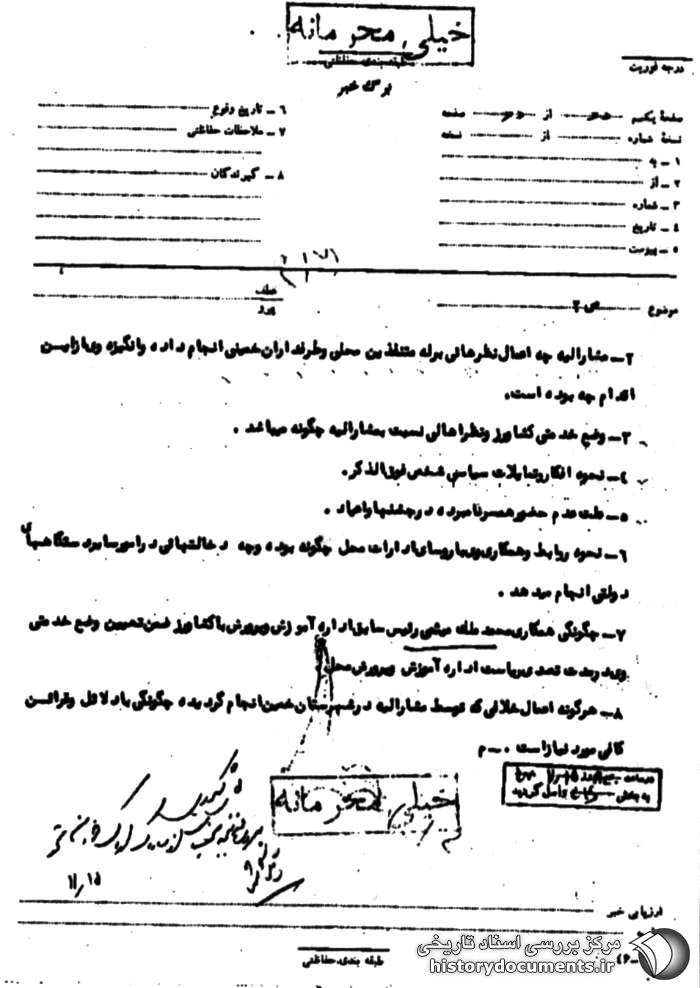 خیلی محرمانه
طبقه بندی حفاظتی
درجه فوریت
برگ خبر
صفحه یکم از صفحه
نسخه شماره از نسخه
۱ ــ به
۲ ــ از
۳ ــ شماره
۴ ــ تاریخ
۵ ــ پیوست
۶ ــ تاریخ وقوع
۷ ــ ملاحظات حفاظتی
۸ ــ گیرندگان
موضوع
عطف
پیرو
۲ــ مشارالیه چه اعمال نظرهائی برله متنفذین محلی وطرفداران خمینی انجام داده وانگیزه وی ازایــن
اقدام چه بوده است.
۳ــ وضع خدمتی کشاورز ونظراهالی نسبت بمشارالیه چگونه میباشد .
۴ــ نحوه افکاروتمایلات سیاسی شخص فوق الذکر.
۵ــ علت عدم حضورهمسرنامبرده درجشنهاواعیاد .
۶ــ نحوه روابط وهمکاری وی باروسای ادارات محل چگونه بوده وچه دخالتهائی درامورسایردستگاههای
دولتی انجام میدهد .
۷ــ چگونگی همکاری محمد ملک میثمی رئیس سابق اداره آموزش وپرورش باکشاورز ضمن تعیین وضع خدمتی
وی درمدت تصدی ریاست اداره آموزش وپرورش محل.
۸ــ هرگونه اعمال خلافی که توسط مشارالیه درشهرستان خمین انجام گردیده چگونگی بادلائل وقرائــن
کافی موردنیازاست . ــ م
خیلی محرمانه
۱۱/۱۵
ارزیابی خبر
طبقه بندی حفاظتی
مرکز بررسی اسناد تاریخی
historydocuments.ir